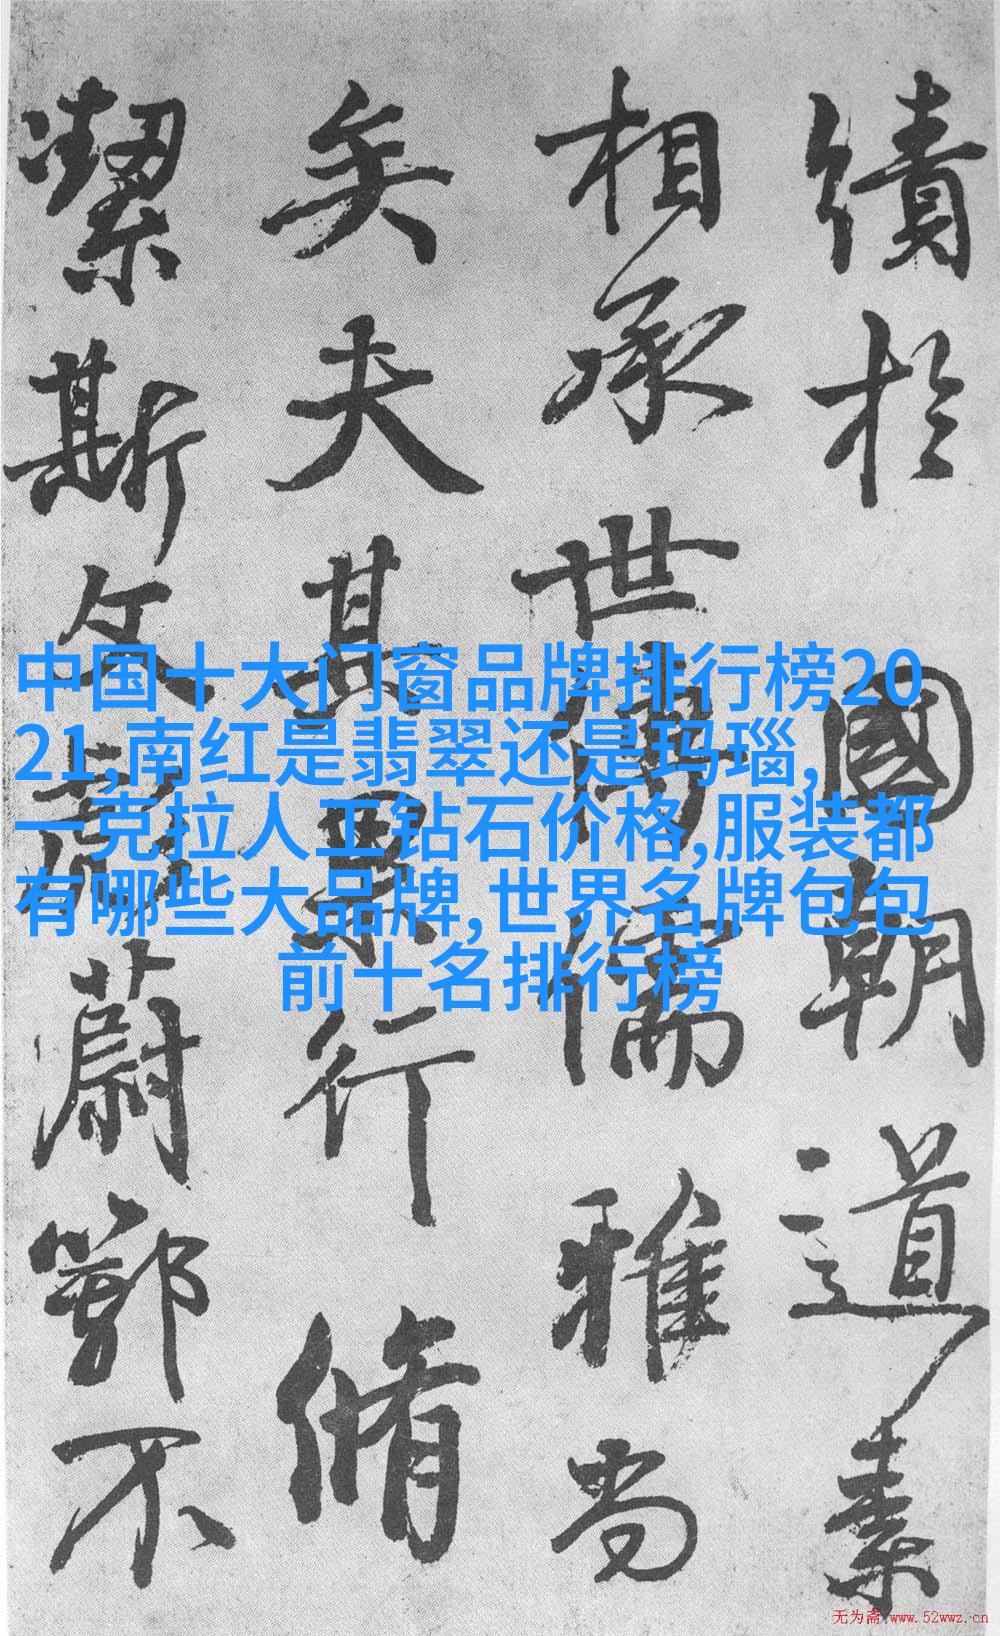 中国十大门窗品牌排行榜20
21,南红是翡翠还是玛瑙,
一克拉人工钻石价格,服装都
有哪些大品牌,世界名牌包包
前十名排行榜
績於國朝道素
相承世傳儒雅尚
矣夫其景行脩
潔斯文蔚鄂不
无为斋 www.52wwz.cn